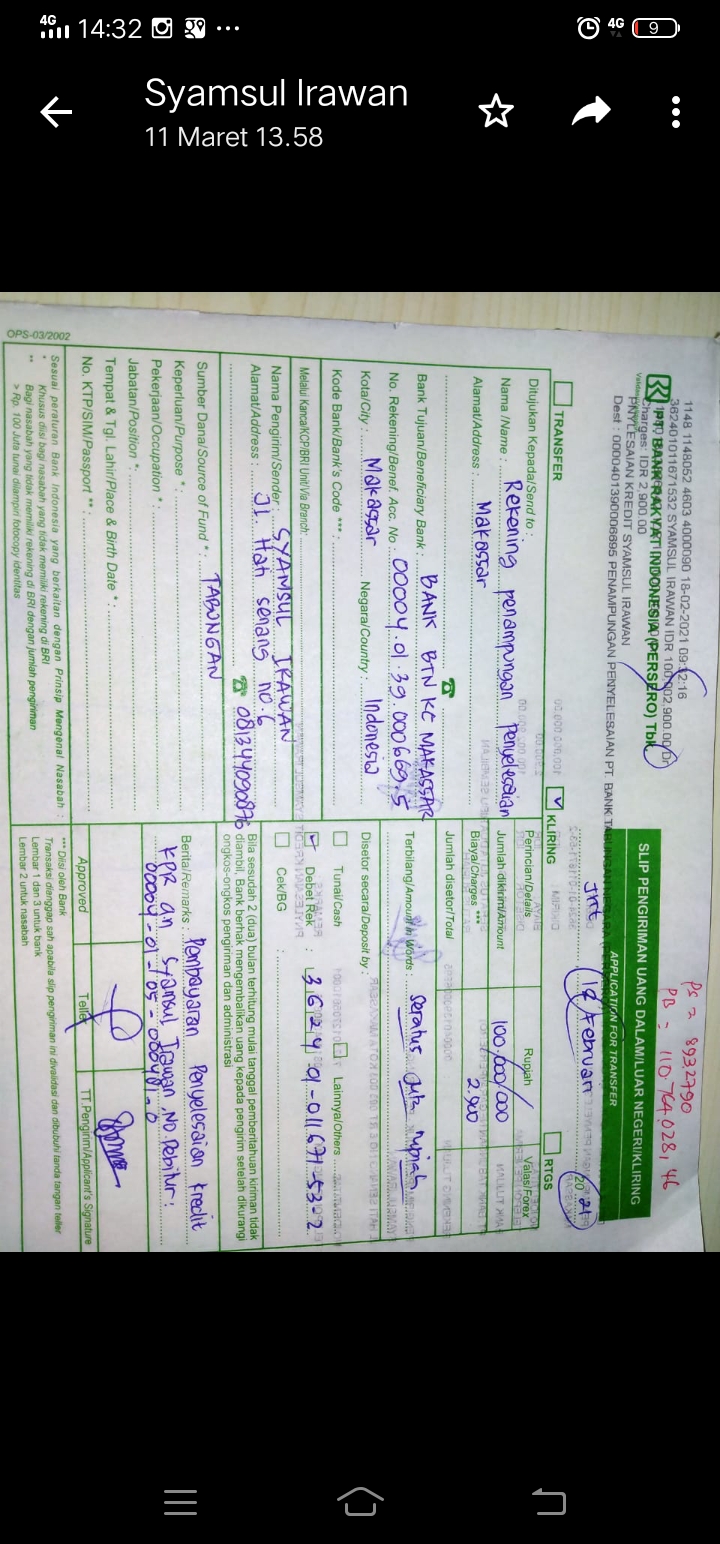 4G 14:32
4G 9
Syamsul Irawan
11 Maret 13.58
PS = 8932790
PB = 110.764.028,46
1148 1148052 4603 4000090 18-02-2021 09:12:16
362401011671532 SYAMSUL IRAWAN IDR 100,002,900.00 Dr
PT BANK RAKYAT INDONESIA (PERSERO) Tbk
Charges: IDR 2,900.00
PNYLESAIAN KREDIT SYAMSUL IRAWAN
Dest : 0000401390006695 PENAMPUNGAN PENYELESAIAN PT. BANK
SLIP PENGIRIMAN UANG DALAM/LUAR NEGERI/KLIRING
APPLICATION FOR TRANSFER
18 Februari 2021
TRANSFER
KLIRING
RTGS
Ditujukan Kepada/Send to :
Nama /Name : Rekening penampungan Penyelesaian
Alamat/Address : Makassar
Bank Tujuan/Beneficiary Bank : BANK BTN KC MAKASSAR
No. Rekening/Benef. Acc. No : 00004.01.39.000669.5
Kota/City : Makassar Negara/Country : Indonesia
Kode Bank/Bank's Code *** :
Melalui Kanca/KCP/BRI Unit/Via Branch:
Nama Pengirim/Sender : SYAMSUL IRAWAN
Alamat/Address : Jl. Hati senang no.6
081344090876
Sumber Dana/Source of Fund * : TABUNGAN
Keperluan/Purpose * :
Pekerjaan/Occupation * :
Jabatan/Position * :
Tempat & Tgl. Lahir/Place & Birth Date * :
No. KTP/SIM/Passport ** :
Sesuai peraturan Bank Indonesia yang berkaitan dengan Prinsip Mengenal Nasabah :
* Khusus diisi bagi nasabah yang tidak memiliki rekening di BRI
** Bagi nasabah yang tidak memiliki rekening di BRI dengan jumlah pengiriman
> Rp. 100 Juta tunai dilampiri fotocopy identitas
OPS-03/2002
Perincian/Details Rupiah Valas/Forex
Jumlah dikirim/Amount 100.000.000
Biaya/Charges *** 2.900
Jumlah disetor/Total
Terbilang/Amount in Words : seratus juta rupiah
Disetor secara/Deposit by :
Tunai/Cash
Lainnya/Others
Debet Rek : 3624-01-011671-53-2
Cek/BG :
Bila sesudah 2 (dua) bulan terhitung mulai tanggal pemberitahuan kiriman tidak
diambil, Bank berhak mengembalikan uang kepada pengirim setelah dikurangi
ongkos-ongkos pengiriman dan administrasi
Berita/Remarks : Pembayaran Penyelesaian kredit
KPR an Syamsul Irawan, No Debitur :
Approved
Teller
TT.Pengirim/Applicant's Signature
*** Diisi oleh Bank
Transaksi dianggap sah apabila slip pengiriman ini divalidasi dan dibubuhi tanda tangan teller
Lembar 1 dan 3 untuk bank
Lembar 2 untuk nasabah